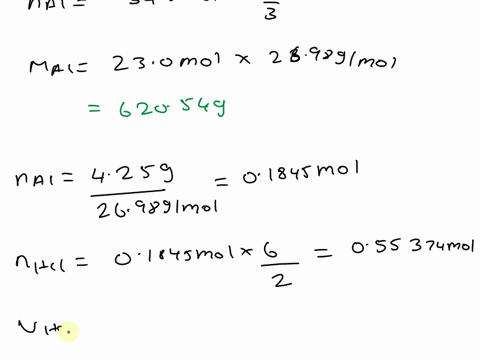 nAl =
3
MAl = 23.0mol × 26.98g/mol
= 620.54g
nAl = 4.25g = 0.1845mol
26.98g/mol
nHCl = 0.1845mol × 6 = 0.55374mol
2
VH